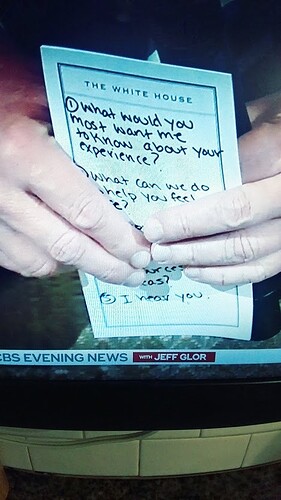 THE WHITE HOUSE
① What would you
most want me
to know about your
experience?
what can we do
help you feel
?
⑤ I hear you.
CBS EVENING NEWS WITH JEFF GLOR